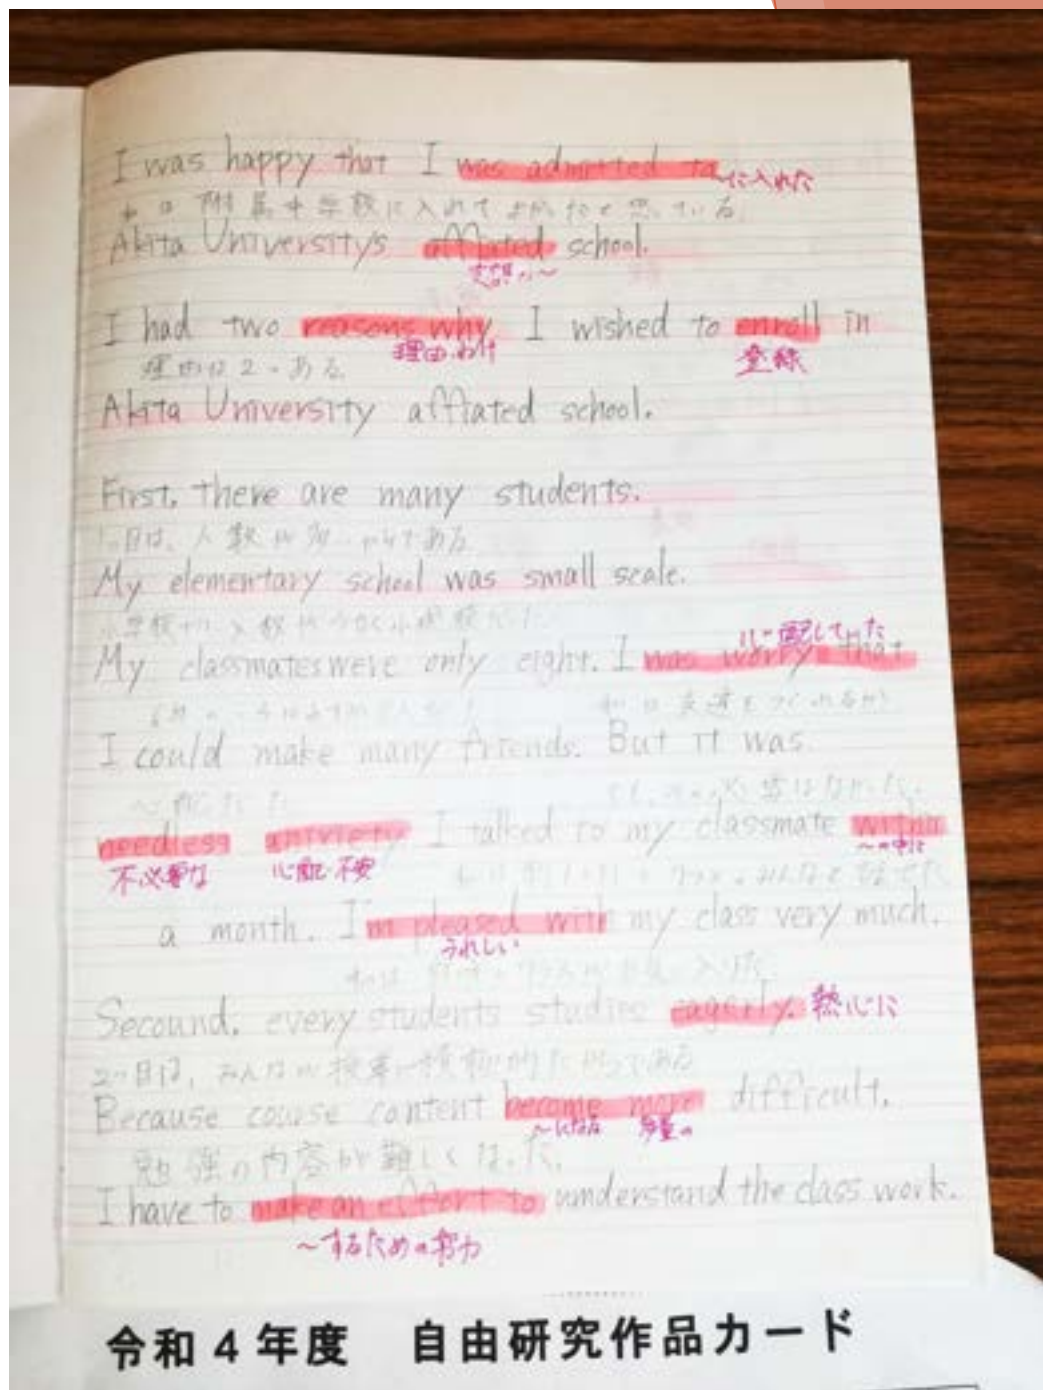 I was happy that I was admitted to に入れた
附属中学校に入れてよかったと思っている
Akita University's affliated school.
I had two reasons why I wished to enroll in
理由は2つある 理由.わけ 登録
Akita University affliated school.
First, there are many students.
1つ目は、人数が
My elementary school was small scale.
心配していた
My classmates were only eight. I was worry that
I could make many friends. But it was
needless anixiety I talked to my classmate within
不必要な 心配・不安 〜の中に
a month. I'm pleased with my class very much.
うれしい
Secound. every students studies eagerly. 熱心に
2つ目は、みんなが授業に積極的だからである
Because course content become more difficult.
〜になる 多量の
勉強の内容が難しくなった。
I have to make an effort to understand the class work.
〜するための努力
令和4年度 自由研究作品カード